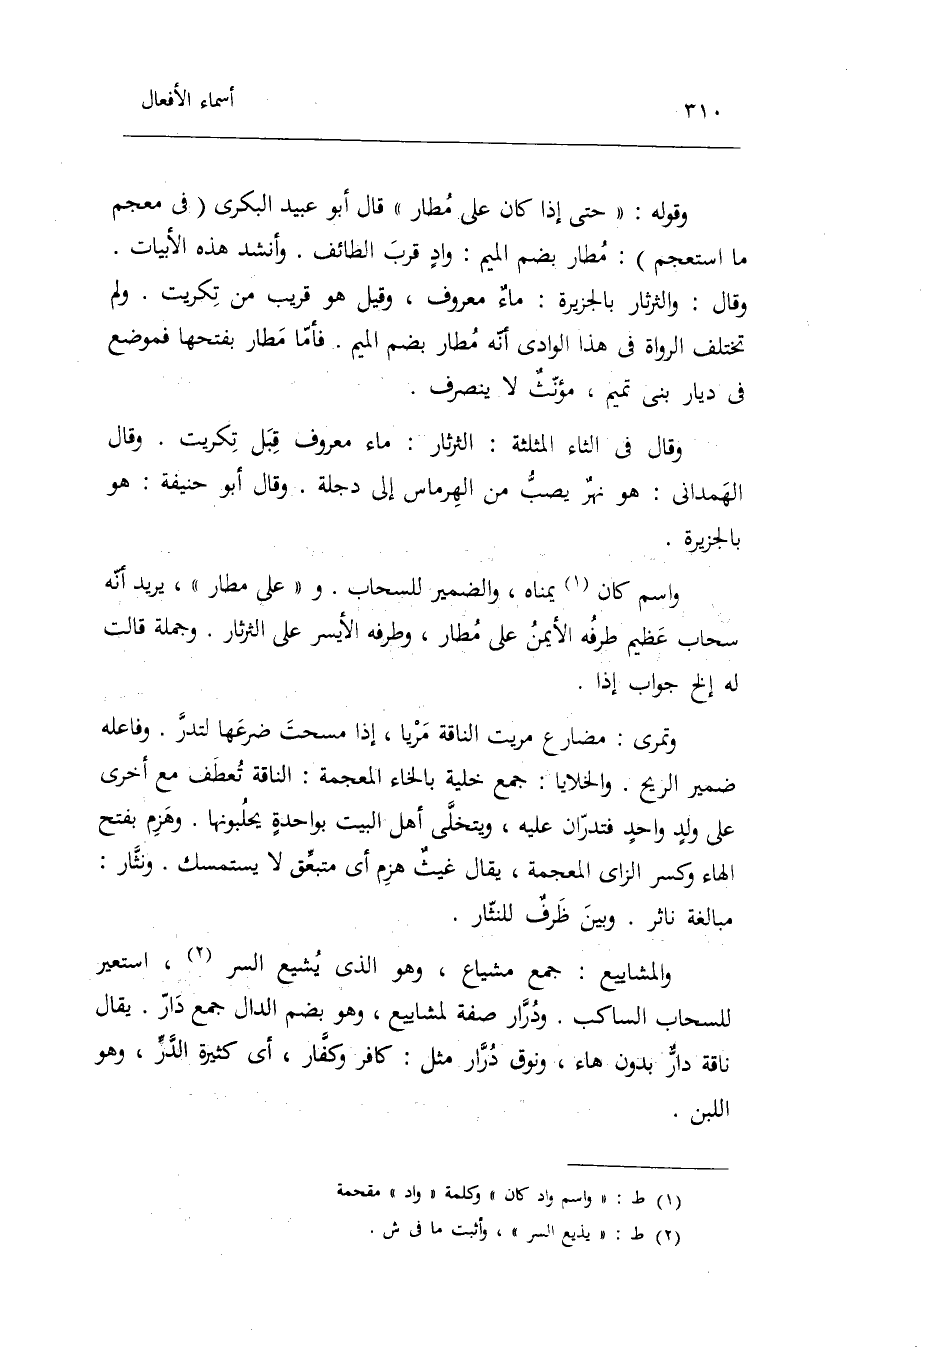 ٣١٠
أسماء الأفعال
وقوله : « حتى إذا كان على مُطار » قال أبو عبيد البكرى ( فى معجم
ما استعجم ) : مُطار بضم الميم : وادٍ قربَ الطائف . وأنشد هذه الأبيات .
وقال : والثرثار بالجزيرة : ماءٌ معروف ، وقيل هو قريب من تِكريت . ولم
تختلف الرواة فى هذا الوادى أنّه مُطار بضم الميم . فأمّا مَطار بفتحها فموضع
فى ديار بنى تميم ، مؤنّثٌ لا ينصرف .
وقال فى الثاء المثلثة : الثرثار : ماء معروف قِبَل تِكريت . وقال
الهَمدانى : هو نهرٌ يصبُّ من الهِرماس إلى دجلة . وقال أبو حنيفة : هو
بالجزيرة .
واسم كان (١) يمناه ، والضمير للسحاب . و « على مطار » ، يريد أنّه
سحاب عَظيم طرفُه الأيمنُ على مُطار ، وطرفه الأيسر على الثرثار . وجملة قالت
له إلخ جواب إذا .
وتمرى : مضارع مريت الناقة مَرْيا ، إذا مسحتَ ضرعَها لتدرَّ . وفاعله
ضمير الريح . والخلايا : جمع خلية بالخاء المعجمة : الناقة تُعطَف مع أخرى
على ولدٍ واحدٍ فتدرّان عليه ، ويتخلَّى أهل البيت بواحدةٍ يحلُبونها . وهَزِم بفتح
الهاء وكسر الزاى المعجمة ، يقال غيثٌ هزِم أى متبعِّق لا يستمسك . ونثَّار :
مبالغة ناثر . وبينَ ظَرفٌ للنثّار .
والمشاييع : جمع مشياع ، وهو الذى يُشيع السر (٢) ، استعير
للسحاب الساكب . ودُرَّار صفة لمشاييع ، وهو بضم الدال جمع دَارّ . يقال
ناقة دارٌّ بدون هاء ، ونوق دُرَّار مثل : كافر وكفَّار ، أى كثيرة الدَّرِّ ، وهو
اللبن .
(١) ط : « واسم واد كان » وكلمة « واد » مقحمة
(٢) ط : « يذيع السر » ، وأثبت ما فى ش .